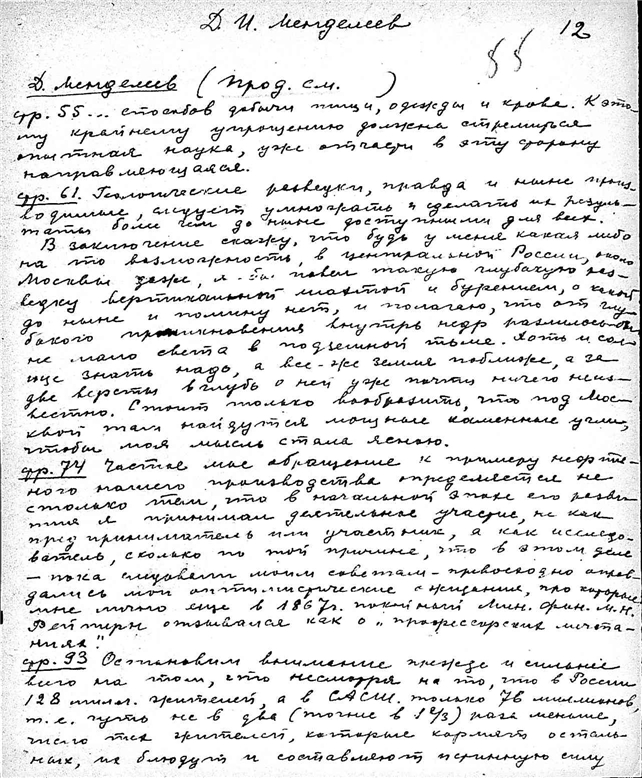 Д. И. Менделеев
12
55
Д. Менделеев ( Прод. см. )
стр. 55 ... способов добычи пищи, одежды и крова. К это-
му крайнему упрощению должна стремиться
опытная наука, уже отчасти в эту сторону
направляющаяся.
стр. 61. Геологические разведки, правда и ныне произ-
водимые, следует умножать и сделать их резуль-
таты более чем до ныне доступными для всех.
В заключение скажу, что будь у меня какая либо
на то возможность, в центральной России, около
Москвы даже, я-бы повел такую глубокую раз-
ведку вертикальной шахтой и бурением, о какой
до ныне и помину нет, и полагаю, что от глу-
бокого проникновения внутрь недр разлилось-бы
не мало света в подземной тьме. Хоть и солн-
це знать надо, а все-же земля поближе, а за
две версты вглубь о ней уже почти ничего неиз-
вестно. Стоит только вообразить, что под Мос-
квой там найдутся мощные каменные угли,
чтобы моя мысль стала ясною.
стр. 74 Частое мое обращение к примеру нефтя-
ного нашего производства определяется не
столько тем, что в начальной эпохе его разви-
тия я принимал деятельное участие, не как
предприниматель или участник, а как исследо-
ватель, сколько по той причине, что в этом деле
- пока следовали моим советам - превосходно оправ-
дались мои оптимистические ожидания, про которые
мне лично еще в 1867г. покойный Мин. Фин. М.Н.
Рейтерн отзывался как о "профессорских мечта-
ниях".
стр. 93 Остановим внимание прежде и сильнее
всего на том, что несмотря на то, что в России
128 милл. жителей, а в САСШ. только 76 миллионов,
т.е. чуть не в два (точнее в 1 2/3) раза меньше,
число тех жителей, которые кормят осталь-
ных, их блюдут и составляют истинную силу